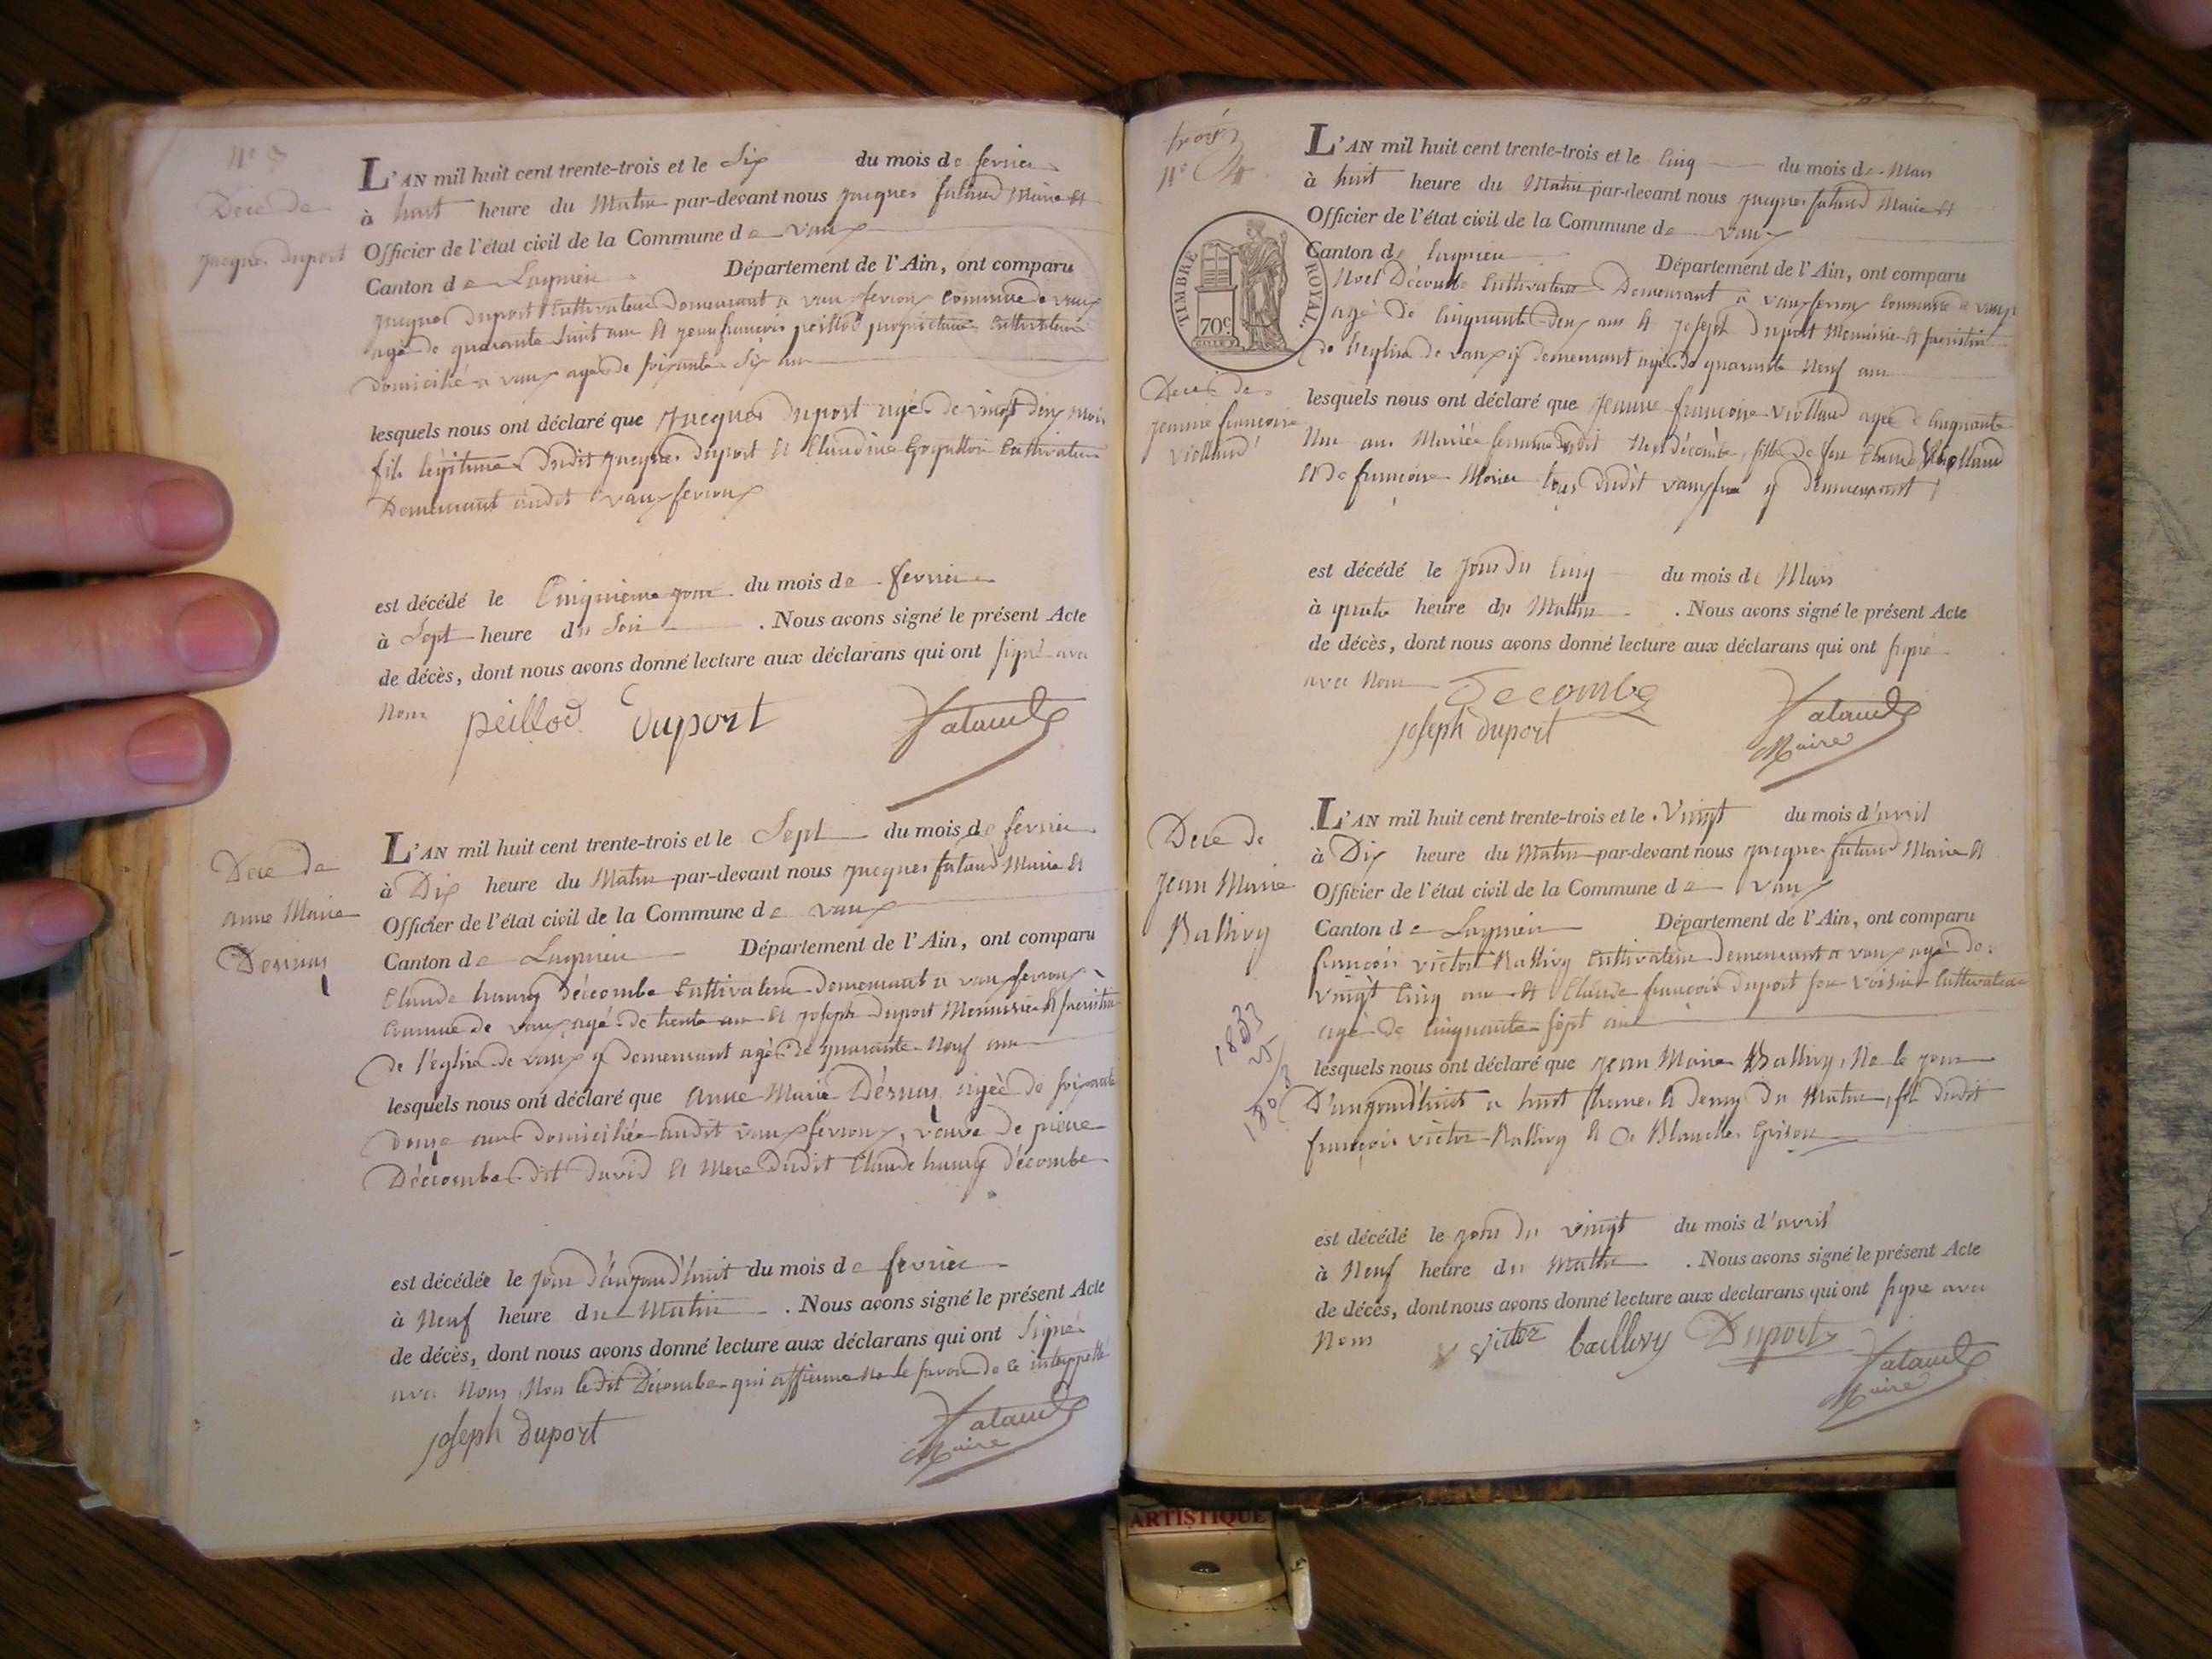 Dece de
jacques duport
L'AN mil huit cent trente-trois et le Six du mois de fevrier
à huit heure du Matin par-devant nous jacques falaud Maire et
Officier de l'état civil de la Commune de vaux
Canton de Lagnieu Département de l'Ain, ont comparu
jacques Duport Cultivateur Demeurant a vaux fevroux Commune de vaux
agé de quarante huit ans et jean françois peillod propriétaire Cultivateur
Domicilié a vaux agé de soixante Six ans
lesquels nous ont déclaré que jacques Duport agé de vingt deux mois
fils légitime Dudit jacques Duport et Claudine Cultivateur
Demeurant audit vaux fevroux
est décédé le Cinquieme jour du mois de fevrier
à Sept heure du Soir . Nous avons signé le présent Acte
de décès, dont nous avons donné lecture aux déclarans qui ont signé avec
Nous peillod duport falaud
Dece de
anne Marie
Dernay
L'AN mil huit cent trente-trois et le Sept du mois de fevrier
à Dix heure du Matin par-devant nous jacques falaud Maire et
Officier de l'état civil de la Commune de vaux
Canton de Lagnieu Département de l'Ain, ont comparu
Claude humy Décombe Cultivateur Demeurant a vaux fevroux
Commune de vaux agé de trente ans et joseph Duport Menuisier et
de l'eglise de vaux y demeurant agé de quarante Neuf ans
lesquels nous ont déclaré que anne Marie Dérnay agée de soixante
douze ans domiciliée audit vaux fevroux, veuve de pierre
Décombe dit David et Mere dudit Claude humy Décombe
est décédée le jour d'aujourd'huit du mois de fevrier
à Neuf heure du Matin . Nous avons signé le présent Acte
de décès, dont nous avons donné lecture aux déclarans qui ont Signé
avec Nous, Non ledit Décombe qui affirme ne le savoir de ce interppellé
joseph Duport falaud
Maire
trois
N° 4
TIMBRE ROYAL.
70c
Deces de
jeanne françoise
viollaud
L'AN mil huit cent trente-trois et le Cinq du mois de Mars
à huit heure du Matin par-devant nous jacques falaud Maire et
Officier de l'état civil de la Commune de vaux
Canton de Lagnieu Département de l'Ain, ont comparu
Noel Décombe Cultivateur Demeurant a vaux fevroux Commune de vaux
agé de Cinquante deux ans et joseph Duport Menuisier et
de l'eglise de vaux y demeurant agé de quarante Neuf ans
lesquels nous ont déclaré que jeanne françoise viollaud agée de Cinquante
Un ans Mariée femme dudit Noel Décombe, fille de feu Claude viollaud
et de françoise Morier tous dudit y Demeurant
est décédé le jour du Cinq du mois de Mars
à quatre heure du Mattin . Nous avons signé le présent Acte
de décès, dont nous avons donné lecture aux déclarans qui ont signé
avec Nous Decombe
joseph duport falaud
Maire
Dece de
jean Marie
Ballivy
1833
25
1808
L'AN mil huit cent trente-trois et le Vingt du mois d'avril
à Dix heure du Matin par-devant nous jacques falaud Maire et
Officier de l'état civil de la Commune de vaux
Canton de Lagnieu Département de l'Ain, ont comparu
françois victor Ballivy Cultivateur Demeurant a vaux agé de
vingt Cinq ans et Claude françois Duport son voisin Cultivateur
agé de Cinquante Sept ans
lesquels nous ont déclaré que jean Marie Ballivy, Né le jour
D'aujourd'huit a huit heures et demy du Matin, fils dudit
françois victor Ballivy et de Blanche Grison
est décédé le jour du vingt du mois d'avril
à Neuf heure du Mattin . Nous avons signé le présent Acte
de décès, dont nous avons donné lecture aux declarans qui ont signé avec
Nous victor ballivy Duport falaud
Maire